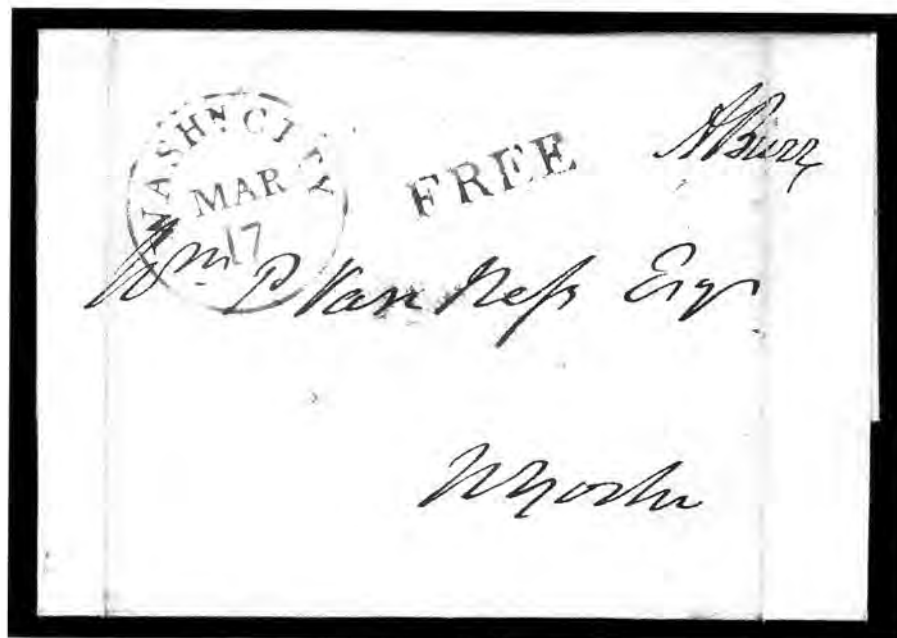 WASHN. CITY
MAR
17
FREE
A Burr
Wm P Van Ness Esqr
N York